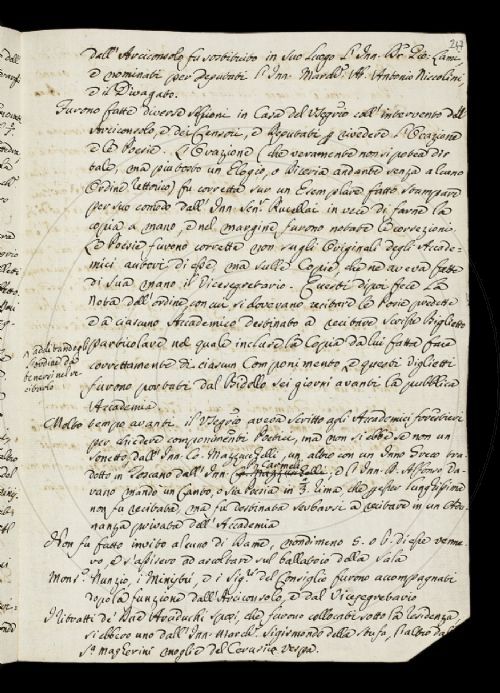 247
dall' Arciconsolo fu sostituito in suo luogo l' Inn. Br. Gio. Lami,
e nominati per Deputati l' Inn. March. A. Antonio Niccolini
e il Divagato.
Furono fatte diverse Sessioni in Casa del Segrio coll' intervento dell'
Arciconsolo, e dei Censori, e Deputati p rivedere l' Orazione
e le Poesie. L' Orazione (che veramente non si potea dir
tale, ma piu tosto un Elogio, o Diceria andante senza alcuno
Ordine rettorico) fu corretta sur un Esemplare fatto stampare
per suo comodo dall' Inn. Senr. Rucellai in vece di farne la
copia a mano, e nel margine furono notate le correzioni.
Le Poesie furono corrette non sugli Originali degli Accade-
mici autori di esse, ma sulle Copie, che ne aveva fatte
di sua mano il Vicesegretario. Questi dipoi fece la
Nota dell' ordine con cui si dovevano recitare le Poesie predette
e a ciascuno Accademico destinato a recitare scrisse Biglietto
particolare nel quale incluse la Copia da lui fatta fare
correttamente di ciascun Componimento e questi biglietti
furono portati dal Bidello sei giorni avanti la pubblica
Accademia
Molto tempo avanti il Segrio aveva scritto agli Accademici forestieri
per chiedere componimenti Poetici, ma non si ebbe se non un
sonetto dall' Inn. Co. Mazzucchelli, un altro con un Inno Greco tra-
dotto in Toscano dall' Inn. Carmeli, e l' Inn. D. Alfonso Va-
rano mandò un Canto, o sia Poesia in 3. rima, che p esser lunghissima
non fu recitata, ma fu destinata serbarsi a recitare in un' Adu-
nanza privata dell' Accademia
Non fu fatto invito alcuno di Dame, nondimeno 5. o 6. di esse venne-
ro, e s' assisero ad ascoltare sul ballatoio della Sala
Monsr. Nunzio, i Ministri, e i Sigri. del Consiglio furono accompagnati
dopo la funzione dall' Arciconsolo, e dal Vicesegretario
I Ritratti de' due Arciduchi sposi, che furono collocati sotto la Residenza,
si ebbero uno dall' Inn. March. Sigismondo della Stufa, l' altro dalla
Sa. Magherini moglie del Corriere Vespa.